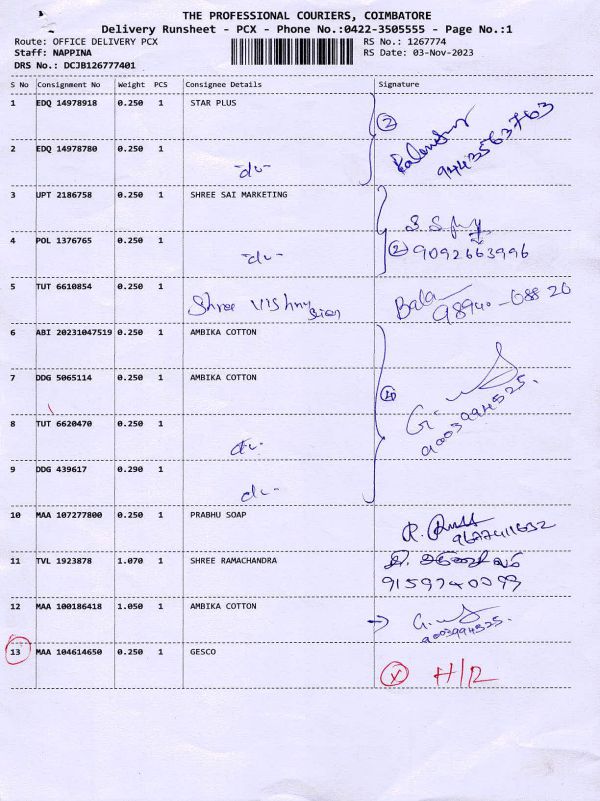 THE PROFESSIONAL COURIERS, COIMBATORE
Delivery Runsheet - PCX - Phone No.:0422-3505555 - Page No.:1
Route: OFFICE DELIVERY PCX RS No.: 1267774
Staff: NAPPINA RS Date: 03-Nov-2023
DRS No.: DCJB126777401
S No Consignment No Weight PCS Consignee Details Signature
1 EDQ 14978918 0.250 1 STAR PLUS
2 9443563763
2 EDQ 14978780 0.250 1 -do-
3 UPT 2186758 0.250 1 SHREE SAI MARKETING
4 POL 1376765 0.250 1 -do- 2 9092663996
5 TUT 6610854 0.250 1 Shree Vishnu Bala 98940-08820
6 ABI 20231047519 0.250 1 AMBIKA COTTON
7 DDG 5065114 0.250 1 AMBIKA COTTON
4 G. 9003994525.
8 TUT 6620470 0.250 1 do-
9 DDG 439617 0.290 1 do-
10 MAA 107277800 0.250 1 PRABHU SOAP R. 9677411632
11 TVL 1923878 1.070 1 SHREE RAMACHANDRA
9159740099
12 MAA 100186418 1.050 1 AMBIKA COTTON → G.
9003994525.
13 MAA 104614650 0.250 1 GESCO X H/R